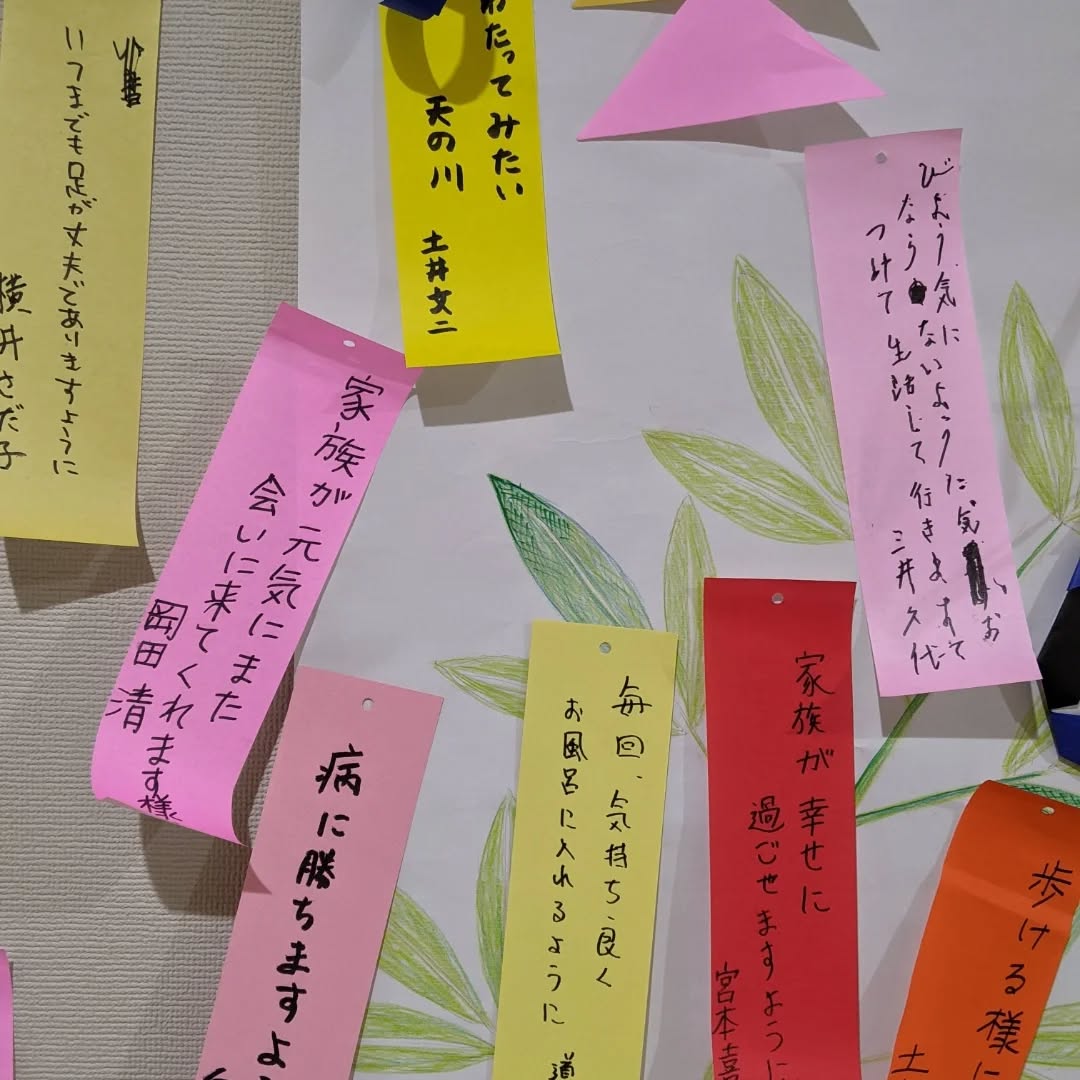 いつまでも足が丈夫でありますように
横井さだ子
わたってみたい
天の川
土井文二
びょう気に
ならないようた気
お
つけて生活して行きますて
三井久代
家族が元気にまた
会いに来てくれます様
岡田 清
病に勝ちますよう
毎回、気持ち良く
お風呂に入れるように
道
家族が幸せに
過ごせますように
宮本喜
歩ける様に
土